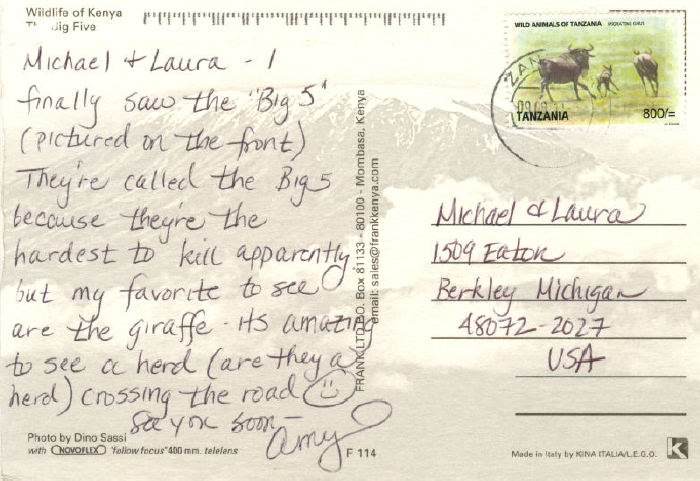 Wildlife of Kenya
Big Five
Michael & Laura - I
finally saw the "Big 5"
(pictured on the front)
They're called the Big 5
because they're the
hardest to kill apparently
but my favorite to see
are the giraffe - its amazing
to see a herd (are they a
herd) crossing the road ☺
See you soon -
Amy
Photo by Dino Sassi
with NOVOFLEX "follow focus" 400 mm. telelens
F 114
FRANK LTD P.O. Box 81133 - 80100 - Mombasa, Kenya
email: sales@frankkenya.com
WILD ANIMALS OF TANZANIA
TANZANIA 800/=
Michael & Laura
1509 Eaton
Berkley Michigan
48072-2027
USA
Made in Italy by KINA ITALIA/L.E.G.O.
K